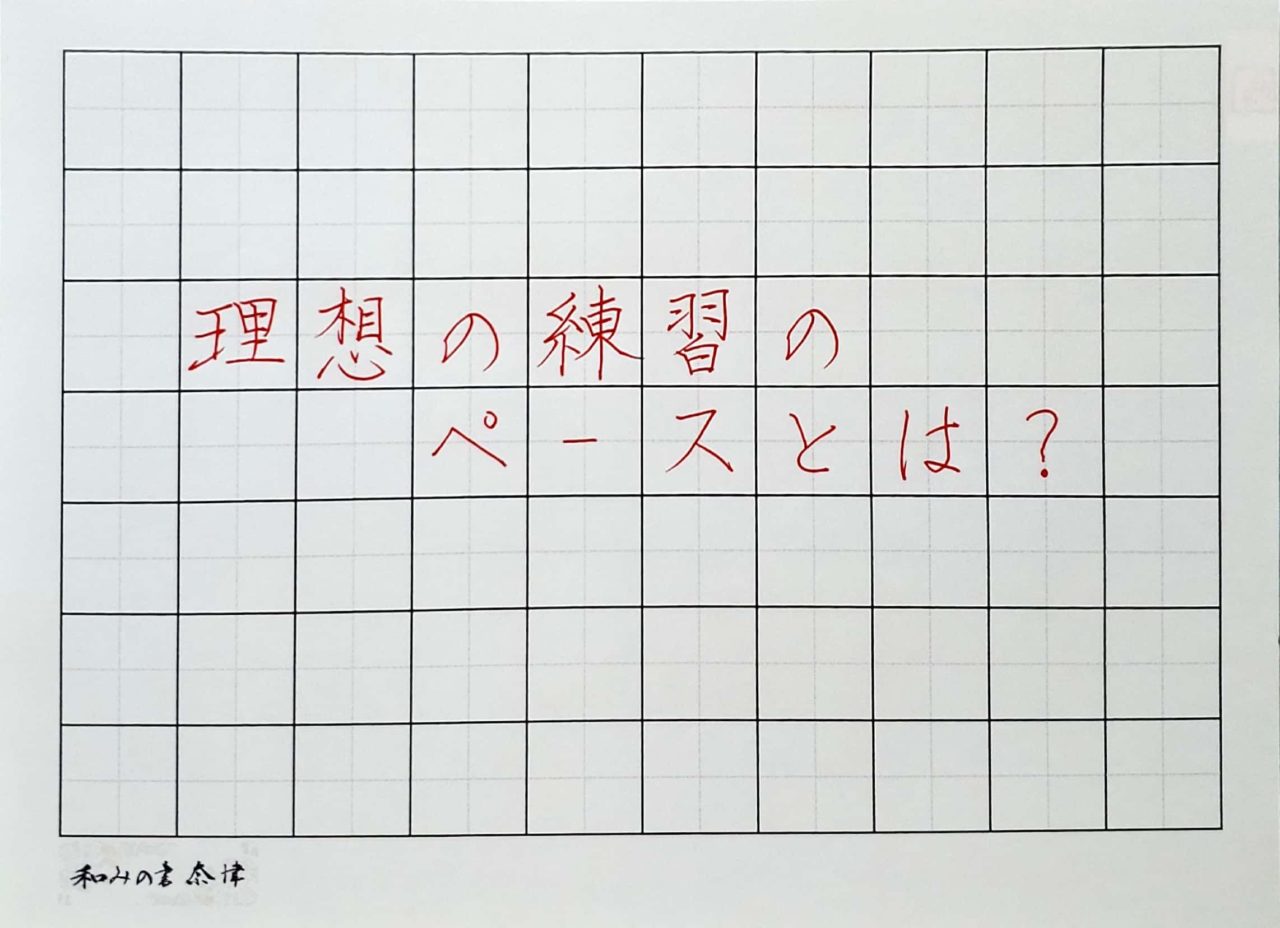 理想の練習の
ペースとは?
和みの書 奈津